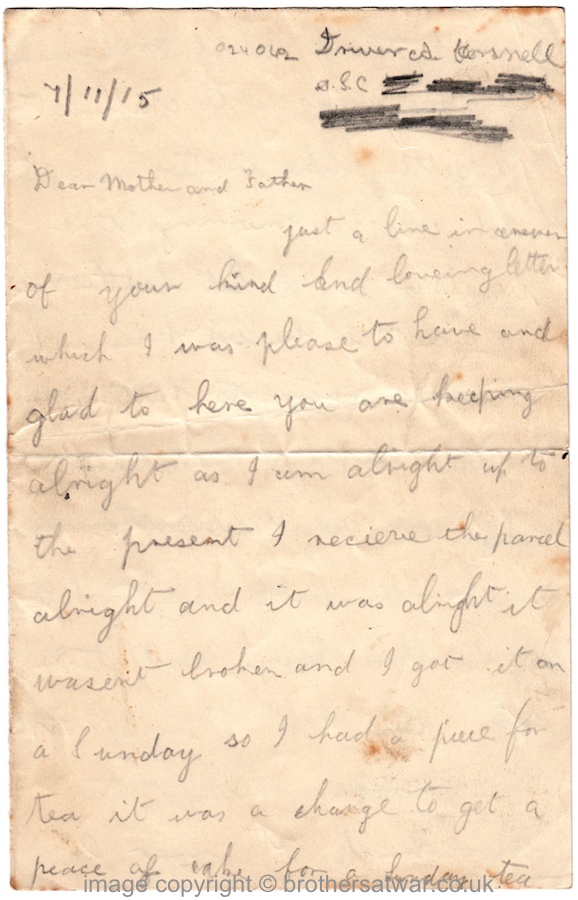 024062 Driver A. Horsnell
7/11/15
A.S.C
Dear Mother and Father
just a line in answer
of your kind and loveing letter
which I was please to have and
glad to here you are keeping
alright as I am alright up to
the present I recieve the parcel
alright and it was alright it
wasent broken and I got it on
a Sunday so I had a piece for
tea it was a change to get a
peace of cake for a Sunday tea
image copyright © brothersatwar.co.uk